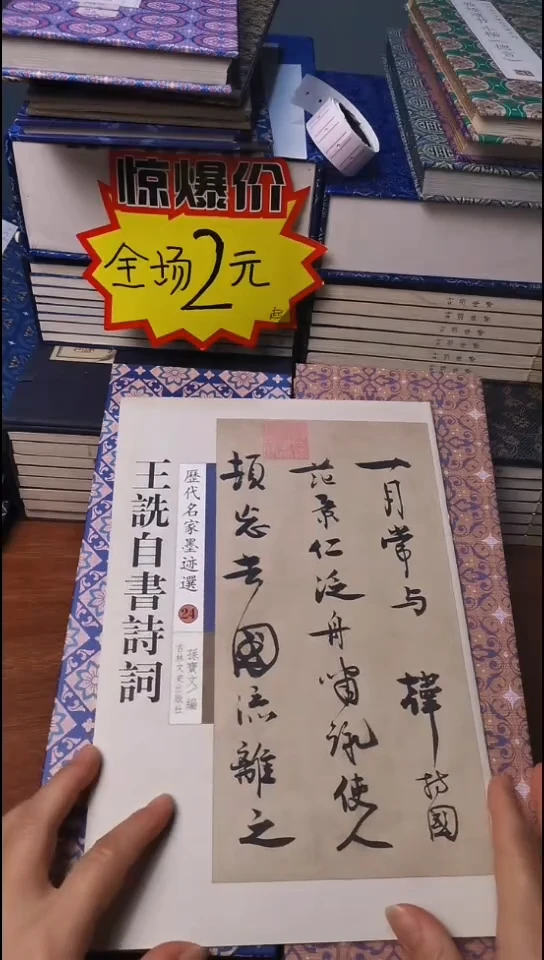 惊爆价
全场2元
起
王詵自書詩詞
歷代名家墨迹選
24
孫寶文 編
吉林文史出版社
一月常与 韓持國
范景仁泛舟嘯詠使人
頓忘去國流離之